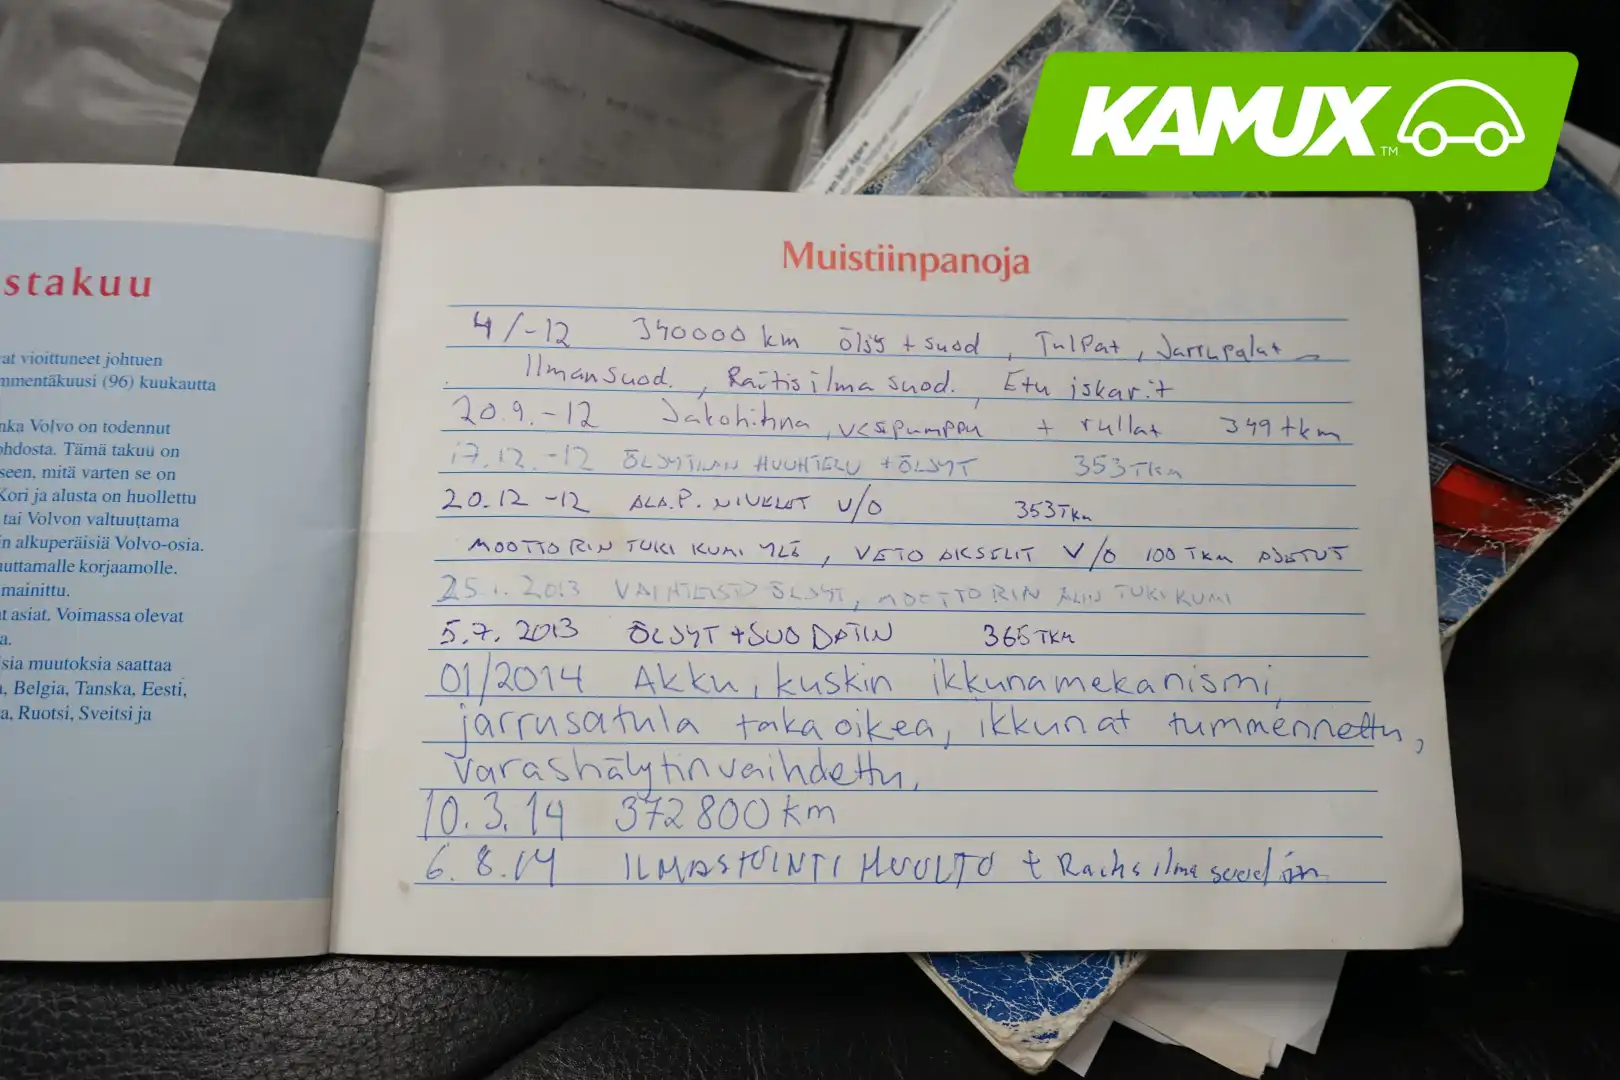 KAMUX™
stakuu
at vioittuneet johtuen
mmentäkuusi (96) kuukautta
nka Volvo on todennut
ohdosta. Tämä takuu on
seen, mitä varten se on
Kori ja alusta on huollettu
tai Volvon valtuuttama
n alkuperäisiä Volvo-osia.
uttamalle korjaamolle.
mainittu.
t asiat. Voimassa olevat
a.
sia muutoksia saattaa
, Belgia, Tanska, Eesti,
a, Ruotsi, Sveitsi ja
Muistiinpanoja
4/-12 340000 km öljy + suod, Tulpat, Jarrupalat
Ilmansuod., Raitisilma suod. Etu iskarit
20.9.-12 Jakohihna, vesipumppu + rullat 349 tkm
17.12.-12 ÖLJYTILAN HUUHTELU + ÖLJYT 353 TKm
20.12 -12 ALA.P. NIVELET V/O 353 TKm
MOOTTORIN TUKI KUMI YLÄ, VETO AKSELIT V/O 100 TKM AJETUT
25.1.2013 VAIHTEISTO ÖLJYT, MOOTTORIN ALIN TUKI KUMI
5.7.2013 ÖLJYT + SUODATIN 365 TKm
01/2014 Akku, kuskin ikkunamekanismi,
jarrusatula takaoikea, ikkunat tummennettu,
varashälytin vaihdettu,
10.3.14 372800 km
6.8.14 ILMASTOINTI HUOLTO +